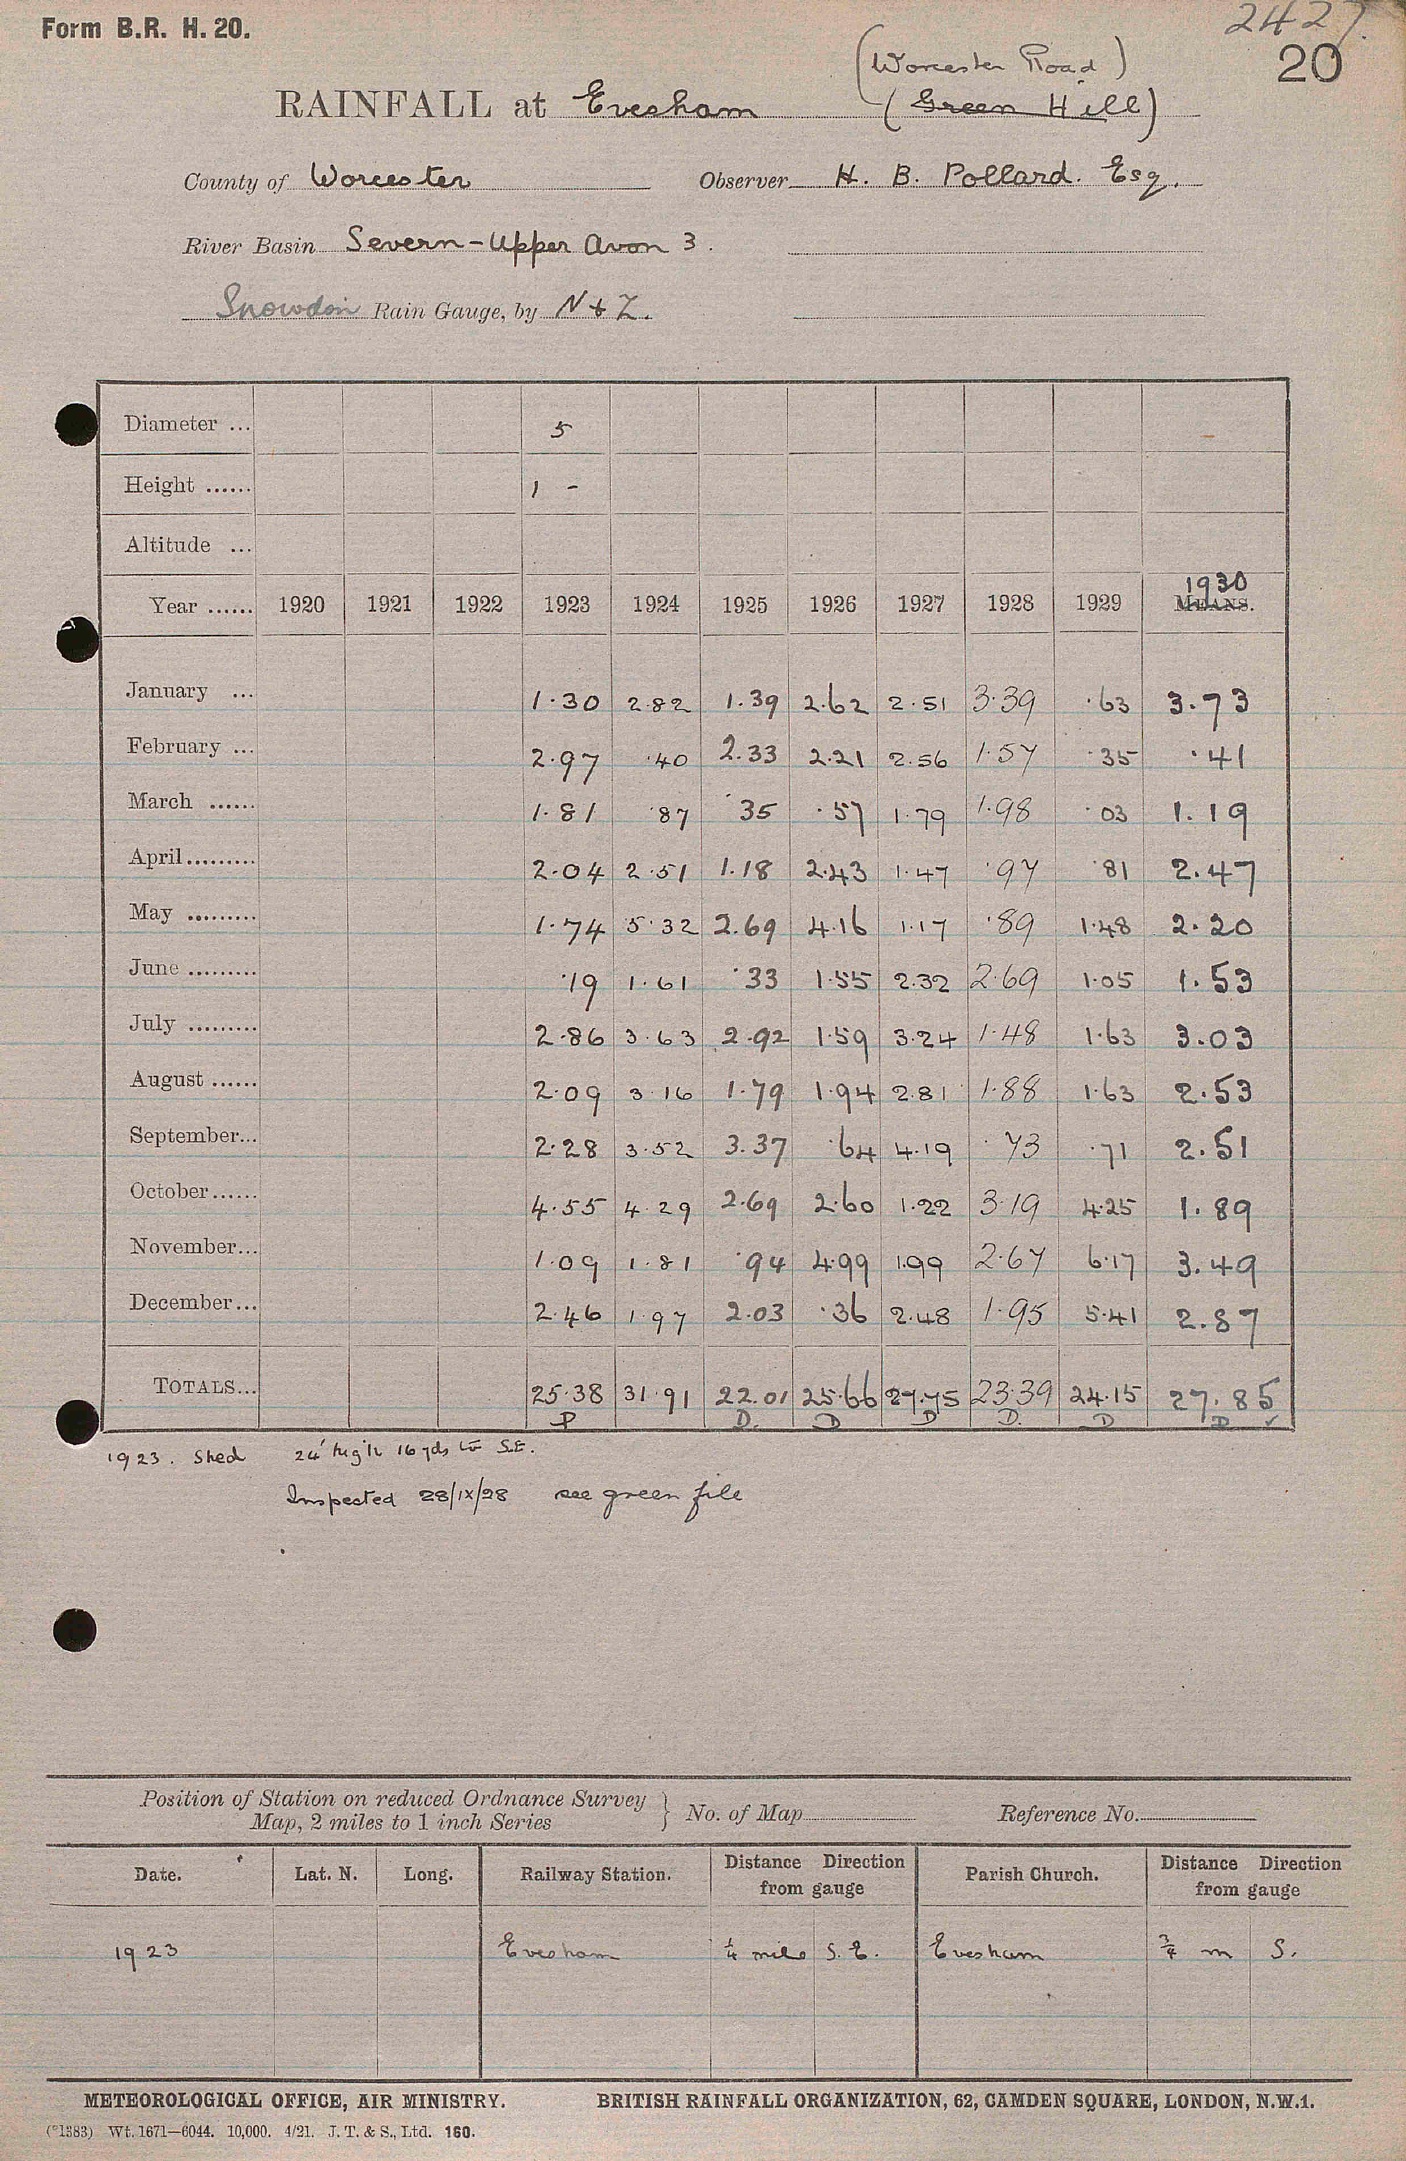 Form B.R. H. 20.
2427.
20
(Worcester Road)
RAINFALL at Evesham (Green Hill)
County of Worcester Observer H. B. Pollard. Esq.
River Basin Severn - Upper Avon 3.
Snowdon Rain Gauge, by N + Z.
Diameter ... 5
Height ...... 1 -
Altitude ...
1930
Year ...... 1920 1921 1922 1923 1924 1925 1926 1927 1928 1929 MEANS.
January ... 1.30 2.82 1.39 2.62 2.51 3.39 .63 3.73
February ... 2.97 .40 2.33 2.21 2.56 1.57 .35 .41
March ...... 1.81 .87 .35 .57 1.79 1.98 .03 1.19
April ......... 2.04 2.51 1.18 2.43 1.47 .97 .81 2.47
May ......... 1.74 5.32 2.69 4.16 1.17 .89 1.48 2.20
June ......... .19 1.61 .33 1.55 2.32 2.69 1.05 1.53
July ......... 2.86 3.63 2.92 1.59 3.24 1.48 1.63 3.03
August ...... 2.09 3.16 1.79 1.94 2.81 1.88 1.63 2.53
September... 2.28 3.52 3.37 .64 4.19 .73 .71 2.51
October...... 4.55 4.29 2.69 2.60 1.22 3.19 4.25 1.89
November... 1.09 1.81 .94 4.99 1.99 2.67 6.17 3.49
December... 2.46 1.97 2.03 .36 2.48 1.95 5.41 2.87
TOTALS... 25.38 31.91 22.01 25.66 27.75 23.39 24.15 27.85
P D. D D D. D D ✓
1923. Shed 24' high 16 yds to S.E.
Inspected 28/IX/28 see green file
Position of Station on reduced Ordnance Survey
Map, 2 miles to 1 inch Series } No. of Map Reference No.
Date. Lat. N. Long. Railway Station. Distance Direction from gauge Parish Church. Distance Direction from gauge
1923 Evesham ¼ mile S.E. Evesham ¾ m S.
METEOROLOGICAL OFFICE, AIR MINISTRY. BRITISH RAINFALL ORGANIZATION, 62, CAMDEN SQUARE, LONDON, N.W.1.
(*1383) Wt. 1671—6044. 10,000. 4/21. J. T. & S., Ltd. 160.